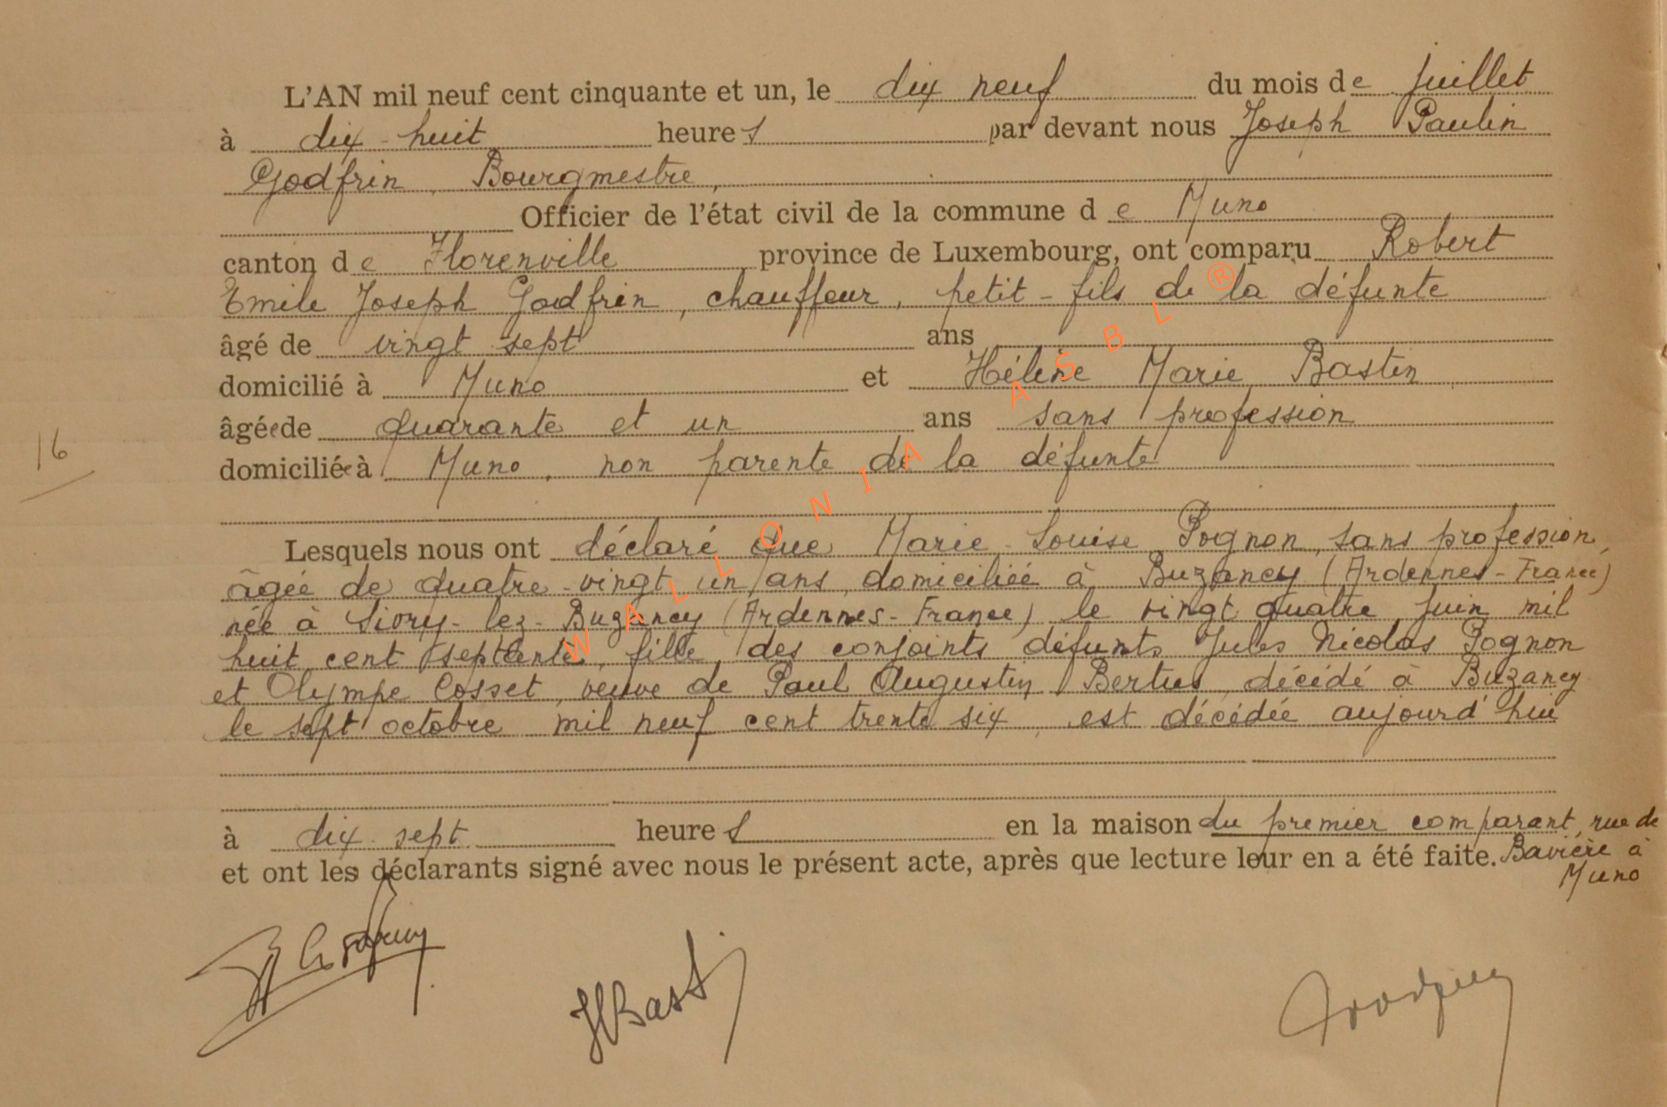 L'AN mil neuf cent cinquante et un, le dix neuf du mois de juillet
à dix-huit heures par devant nous Joseph Paulin
Godfrin, Bourgmestre,
Officier de l'état civil de la commune de Muno
canton de Florenville province de Luxembourg, ont comparu Robert
Emile Joseph Godfrin, chauffeur, petit-fils de la défunte
âgé de vingt sept ans
domicilié à Muno et Hélène Marie Bastin
âgée de quarante et un ans sans profession
16
domiciliée à Muno, non parente de la défunte
Lesquels nous ont déclaré que Marie-Louise Pognon, sans profession,
âgée de quatre-vingt un ans, domiciliée à Buzancy (Ardennes-France)
née à Sivry-lez-Buzancy (Ardennes-France) le vingt quatre juin mil
huit cent septante, fille des conjoints défunts Jules Nicolas Pognon
et Olympe Cosset, veuve de Paul Augustin Bertus décédé à Buzancy
le sept octobre mil neuf cent trente six, est décédée aujourd'hui
à dix-sept heures en la maison du premier comparant, rue de
et ont les déclarants signé avec nous le présent acte, après que lecture leur en a été faite. Bavière à
Muno
HBasti
WALLONIA ASBL ®